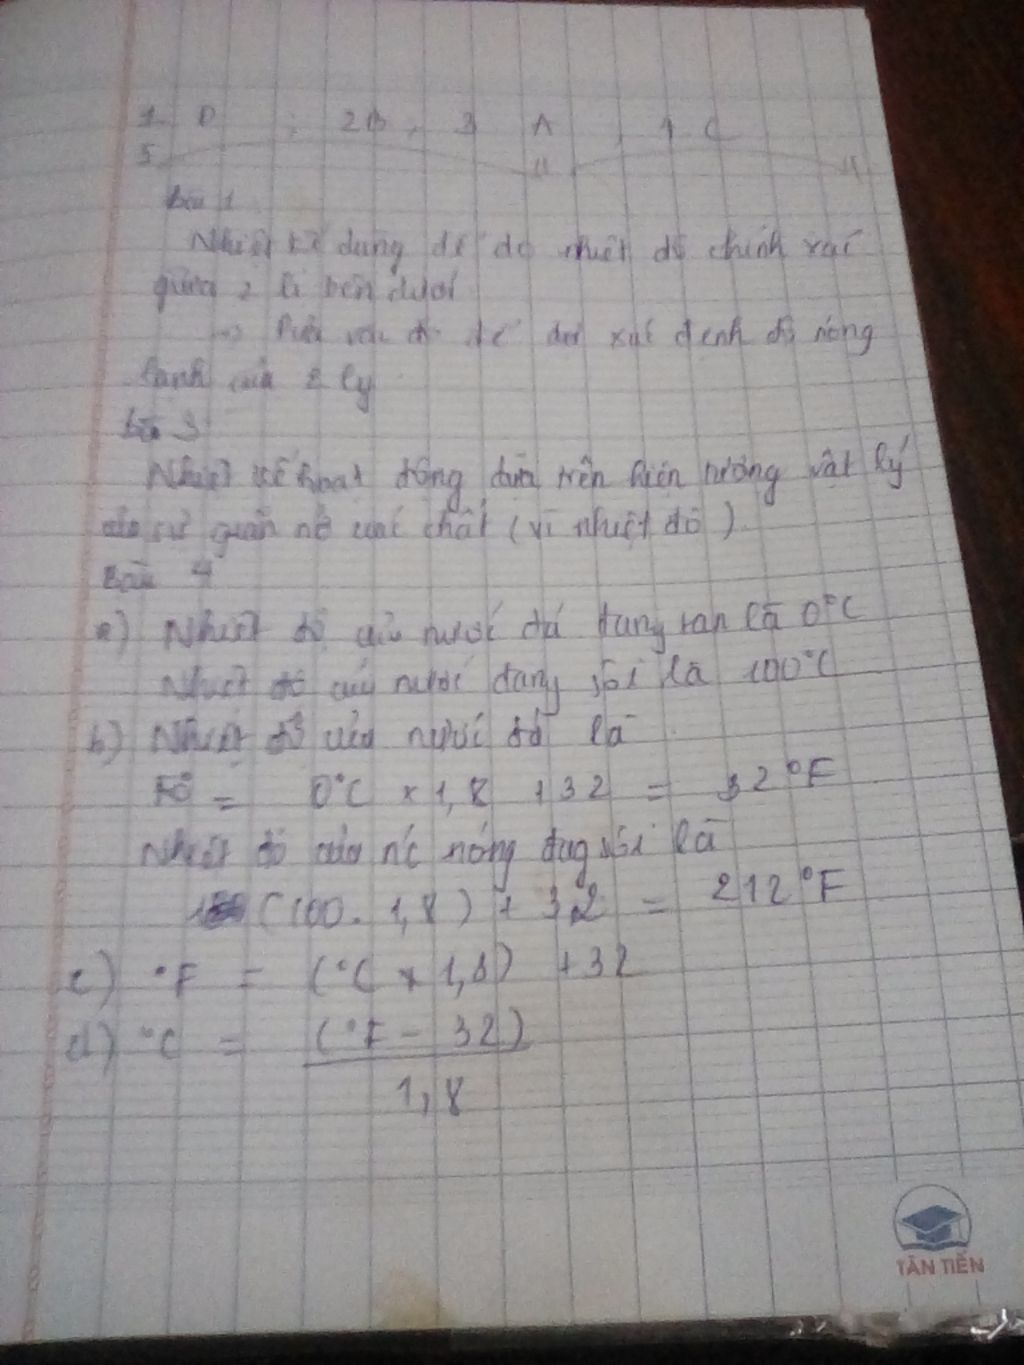 1 D ; 2B, 3 A , 4 C
5
bài 1
Nhiệt kế dùng để đo nhiệt độ chính xác
giữa 2 li bên dưới
→ để xác định độ nóng
lạnh của 2 ly
bài 3
Nhiệt kế hoạt động dựa trên hiện tượng vật lý
của sự quản nở các chất (vì nhiệt độ).
Bài 4
a) Nhiệt độ của nước đá đang tan là 0°C
Nhiệt độ của nước đang sôi là 100°C
b) Nhiệt độ của nước đá là
= 0°C × 1,8 + 32 = 32°F
Nhiệt độ của nc nóng đag sôi là
(100. 1,8) + 32 = 212°F
c) °F = (°C × 1,8) + 32
d) °C = (°F - 32)
1,8
TÂN TIẾN